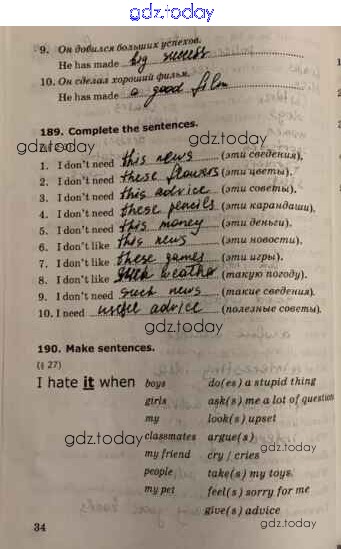 gdz.today
9. Он добился больших успехов.
He has made big success
10. Он сделал хороший фильм.
He has made a good film
gdz.today
189. Complete the sentences.
gdz.today
1. I don't need this news (эти сведения).
2. I don't need these flowers (эти цветы).
3. I don't need this advice (эти советы).
4. I don't need these pencils (эти карандаши).
5. I don't need this money (эти деньги).
6. I don't like this news (эти новости).
7. I don't like these games (эти игры).
8. I don't like such weather (такую погоду).
9. I don't need such news (такие сведения).
10. I need useful advice (полезные советы).
gdz.today
190. Make sentences.
(§ 27)
I hate it when
boys do(es) a stupid thing
girls ask(s) me a lot of question
my look(s) upset
gdz.today
classmates argue(s)
my friend cry / cries
people take(s) my toys.
my pet feel(s) sorry for me
give(s) advice
gdz.today
34